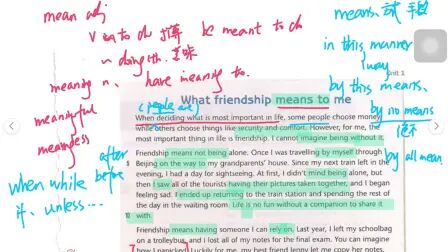 mean adj
v mean to do 打算 be meant to do
doing sth. 意味
meaning n. have meaning to
meaningful
meaningless
means. n. 手段
in this manner
way
by this means.
by no means
by all means
Unit 1
(people are)
What friendship means to me
When deciding what is most important in life, some people choose money
while others choose things like security and comfort. However, for me, the
most important thing in life is friendship. I cannot imagine being without it.
after
when while before
if. unless...
Friendship means not being alone. Once I was travelling by myself through
5
Beijing on the way to my grandparents' house. Since my next train left in the
evening, I had a day for sightseeing. At first, I didn't mind being alone, but
then I saw all of the tourists having their pictures taken together, and I began
feeling sad. I ended up returning to the train station and spending the rest of
the day in the waiting room. Life is no fun without a companion to share it
10
with.
Friendship means having someone I can rely on. Last year, I left my schoolbag
on a trolleybus, and I lost all of my notes for the final exam. You can imagine
how I panicked! Luckily for me, my best friend Jenny let me copy her notes,